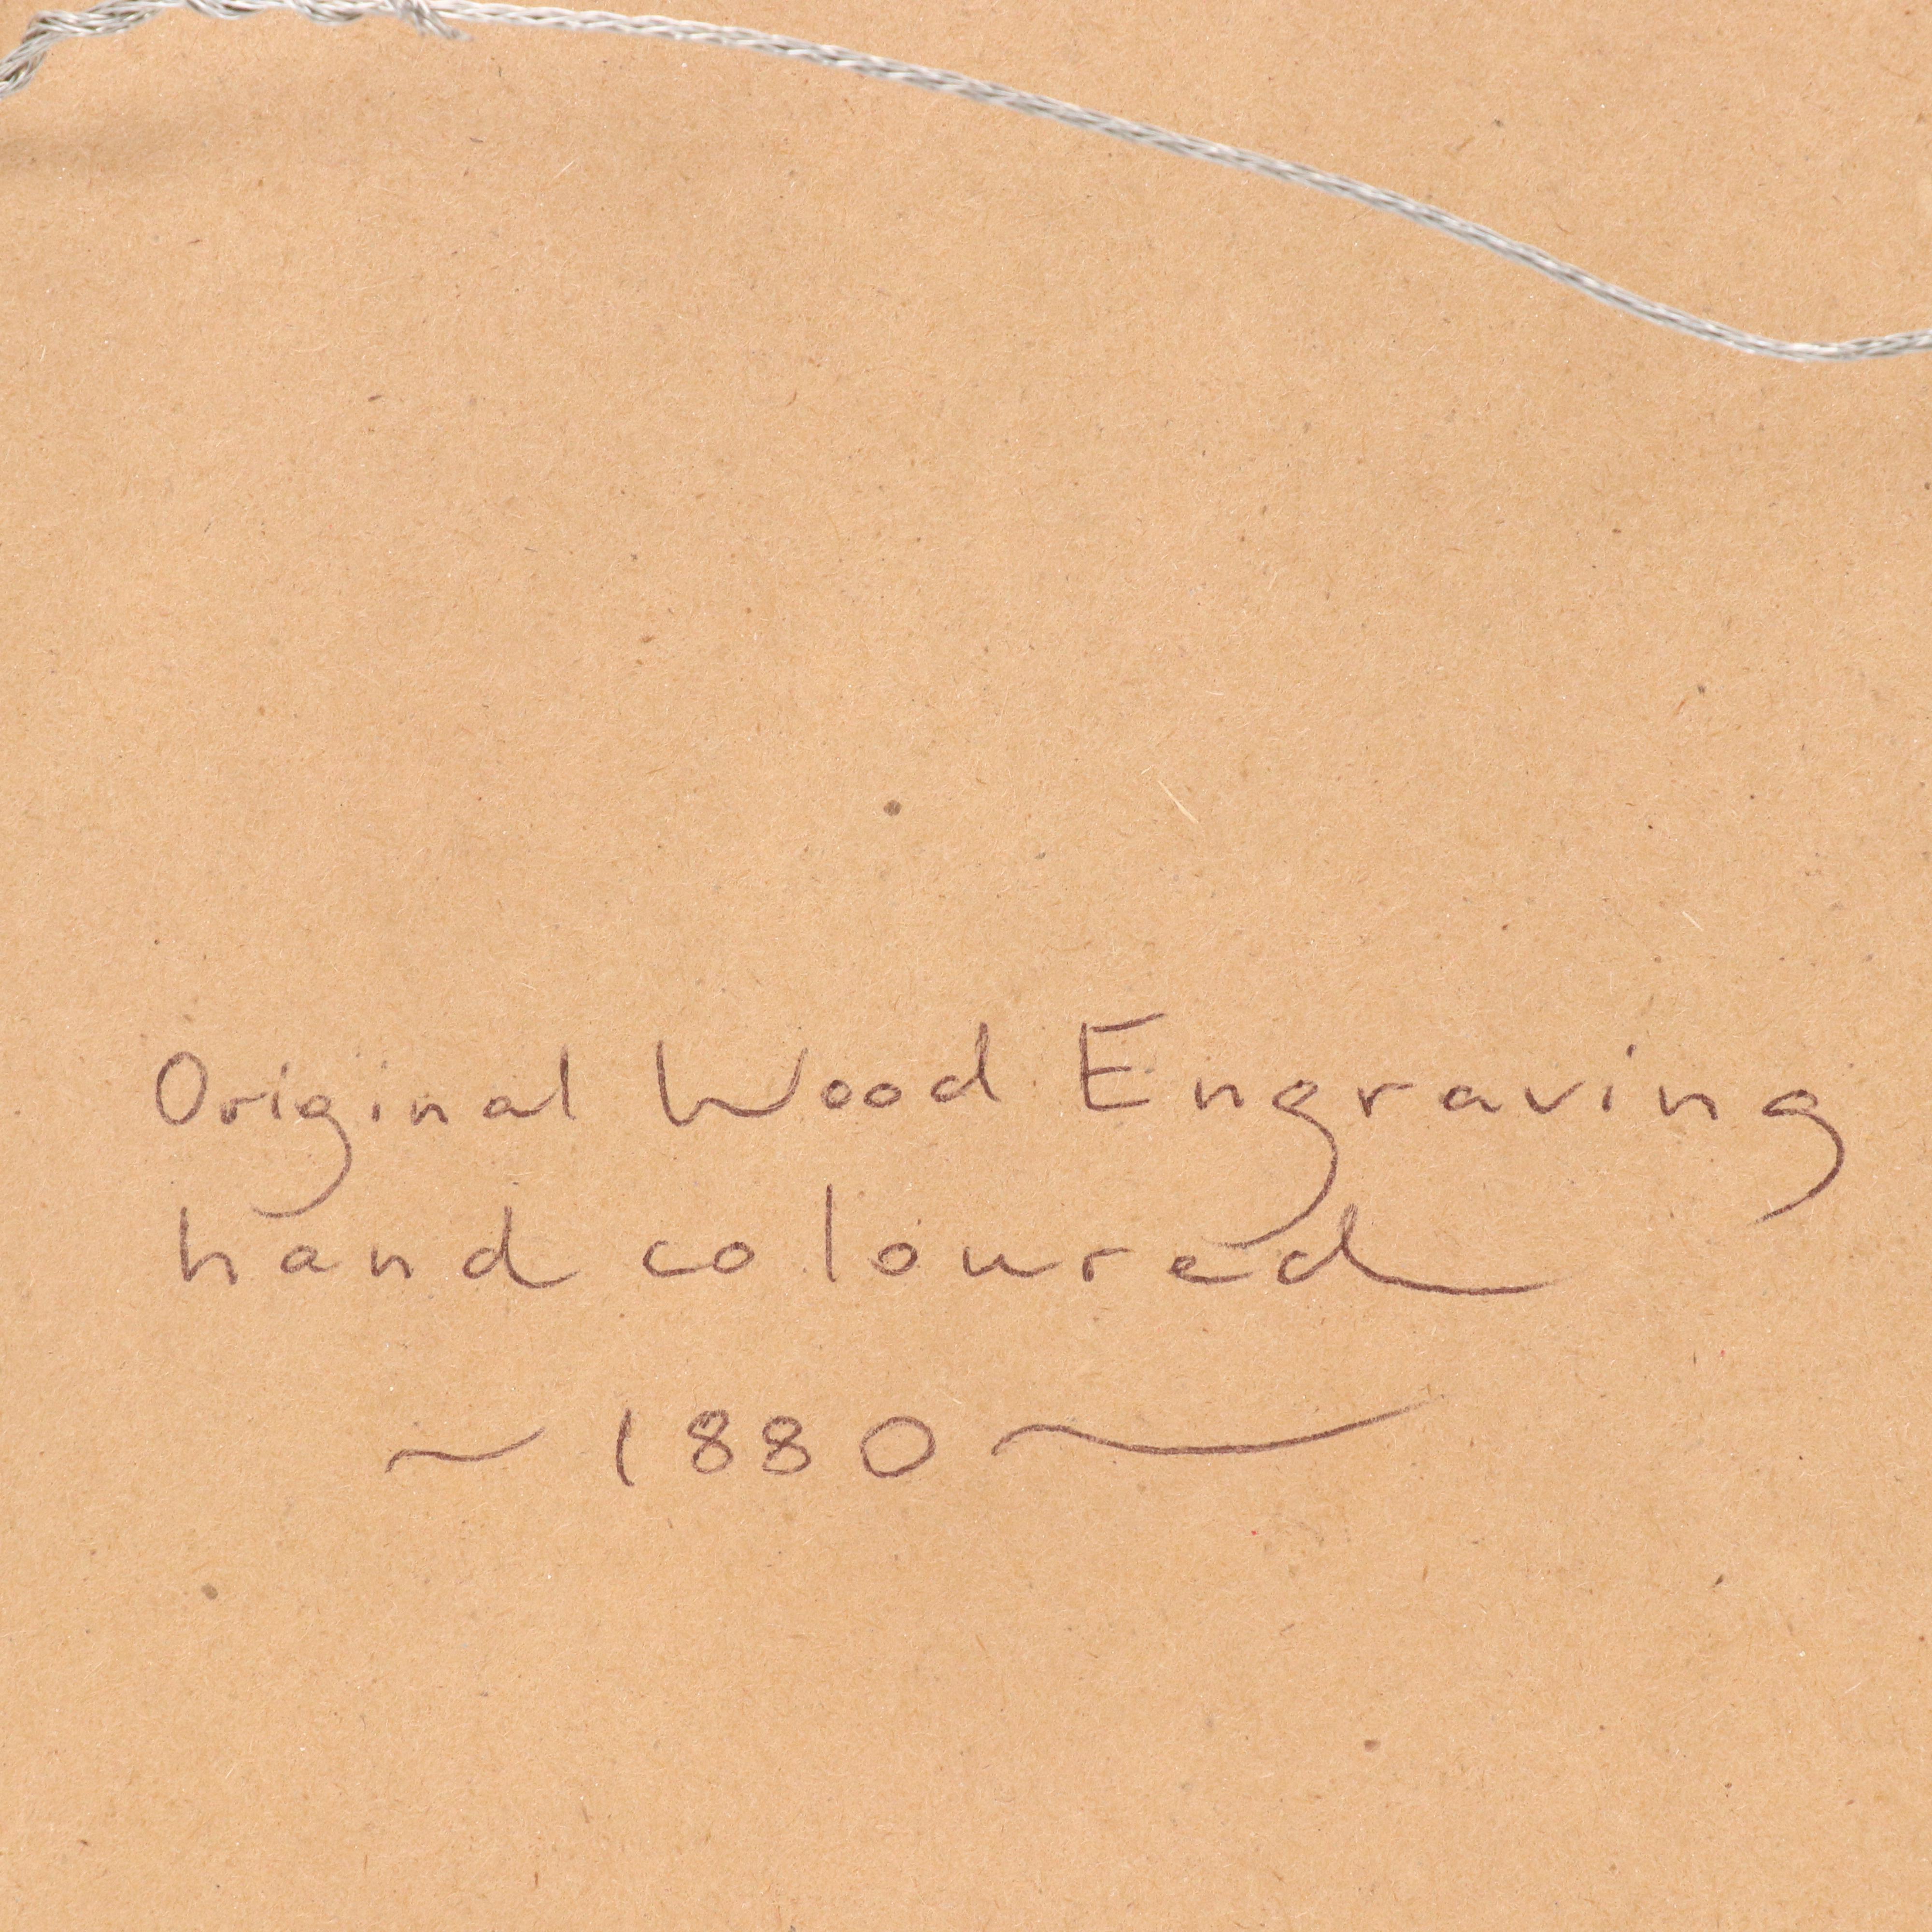 Original Wood Engraving
hand coloured
~ 1880 ~